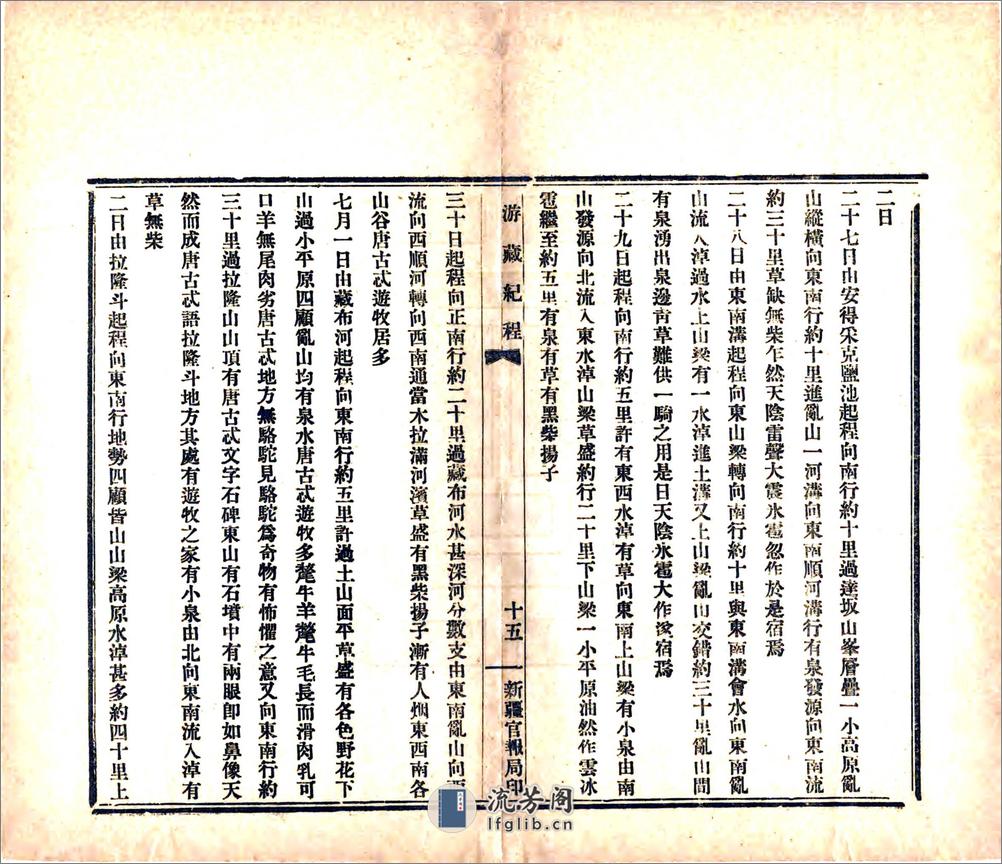 二日
二十七日由安得采克鹽池起程向南行約十里過達坂山峯層疊一小高原亂
山縱橫向東南行約十里進亂山一河溝向東南順河溝行有泉發源向東南流
約三十里草缺無柴乍然天陰雷聲大震氷雹忽作於是宿焉
二十八日由東南溝起程向東山梁轉向南行約十里與東南溝會水向東南亂
山流入淖過水上山梁有一水淖進土溝又上山梁亂山交錯約三十里亂山間
有泉湧出泉邊靑草難供一騎之用是日天陰氷雹大作遂宿焉
二十九日起程向南行約五里許有東西水淖有草向東南上山梁有小泉由南
山發源向北流入東水淖山梁草盛約行二十里下山梁一小平原油然作雲冰
雹繼至約五里有泉有草有黑柴揚子
游藏紀程
十五
新疆官報局印
三十日起程向正南行約二十里過藏布河水甚深河分數支由東南亂山向西
流向西順河轉向西南通當木拉滿河濱草盛有黑柴揚子漸有人烟東西南各
山谷唐古忒遊牧居多
七月一日由藏布河起程向東南行約五里許過土山面平草盛有各色野花下
山過小平原四顧亂山均有泉水唐古忒遊牧多氂牛羊氂牛毛長而滑肉乳可
口羊無尾肉劣唐古忒地方無駱駝見駱駝爲奇物有怖懼之意又向東南行約
三十里過拉隆山山頂有唐古忒文字石碑東山有石墳中有兩眼卽如鼻像天
然而成唐古忒語拉隆斗地方其處有遊牧之家有小泉由北向東南流入淖有
草無柴
二日由拉隆斗起程向東南行地勢四顧皆山山梁高原水淖甚多約四十里上
流芳阁
lfglib.cn